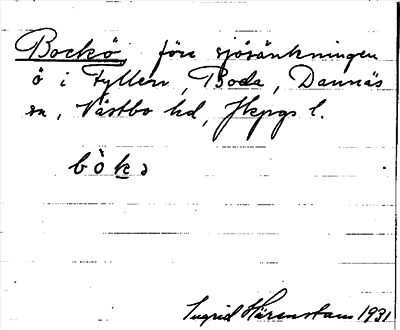 Bockö, före sjösänkningen
ö i Fyllen, Boda, Dannäs
sn, Västbo hd, Jkpgs l.
bòkɔ
Ingrid Härenstam 1931